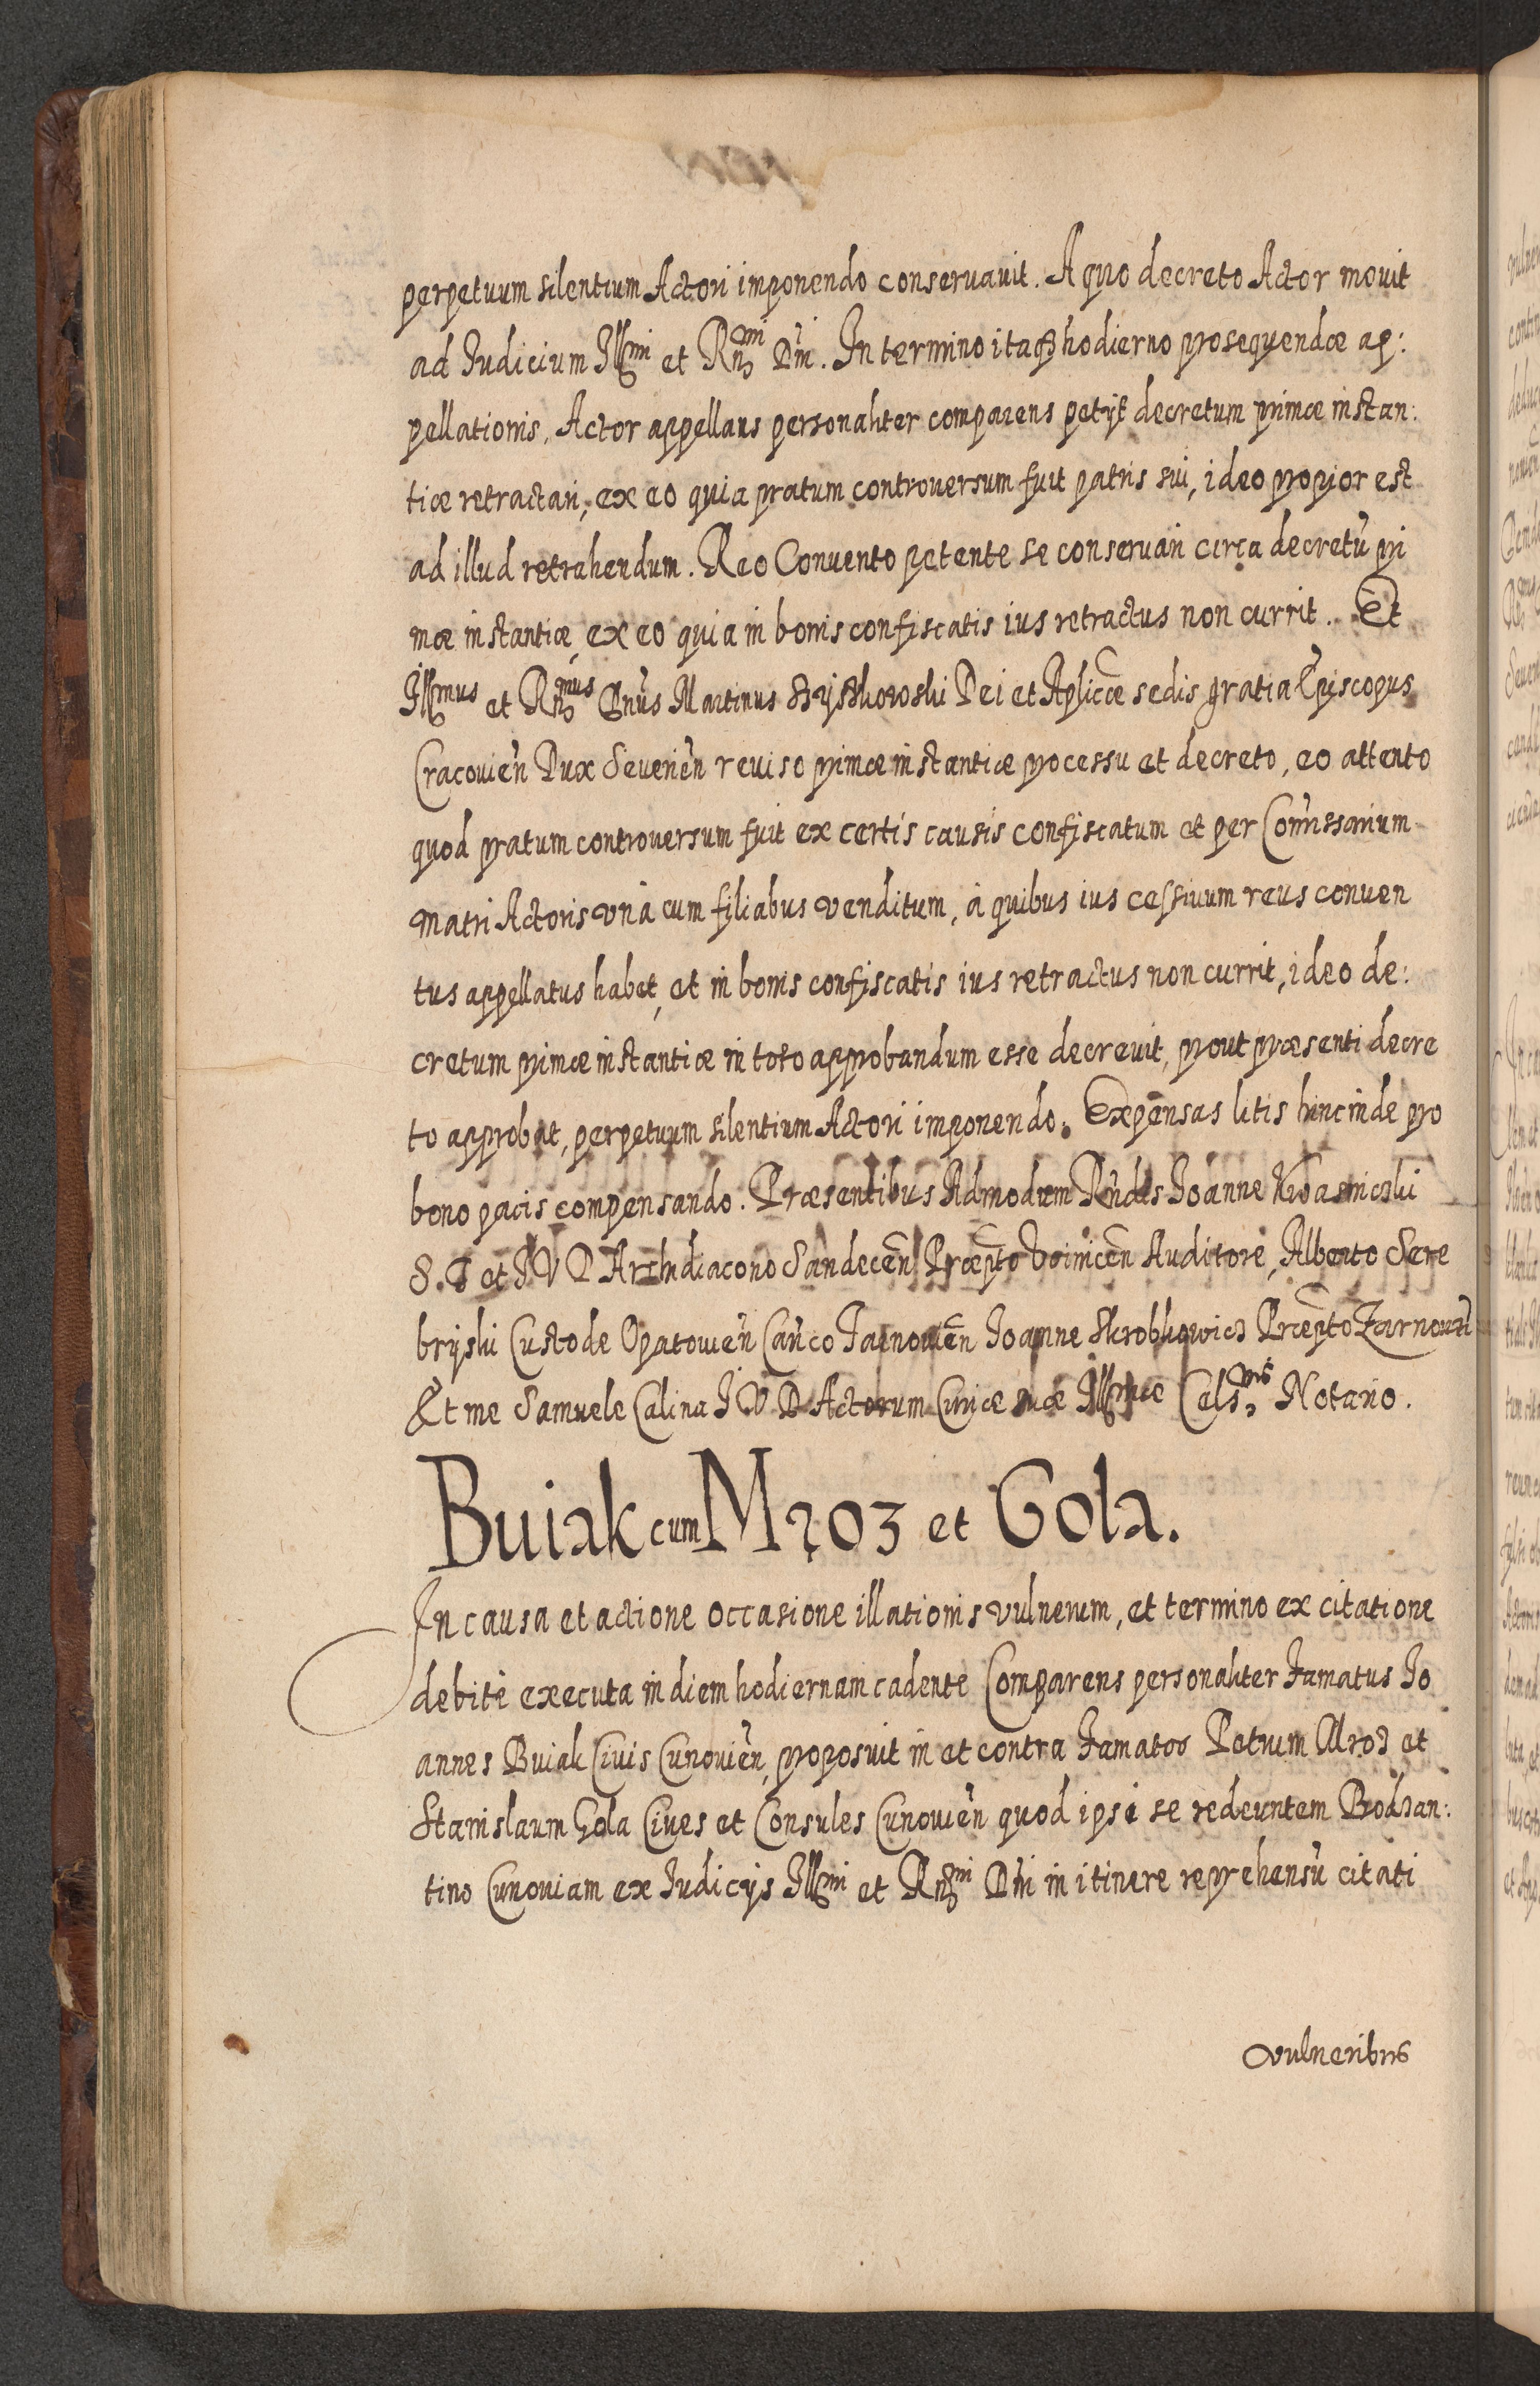 perpetuum silentium Actori imponendo conseruauit. A quo decreto Actor mouit
ad Iudicium Illmi et Rndmi Dni. In termino itaq3 hodierno prosequendæ ap:
pellationis, Actor appellans personaliter comparens petijt decretum primæ instan:
tiæ retractari, ex eo quia pratum controuersum fuit patris sui, ideo propior est
ad illud retrahendum. Reo Conuento petente se conseruari circa decretũ pri
mæ instantiæ, ex eo quia in bonis confiscatis ius retractus non currit. Et
Illmus et Rndmus Dnus Martinus Szyszkowski Dei et Aplicæ sedis gratia Episcopus
Cracouien Dux Seuerien reuiso primæ instantiæ processu et decreto, eo attento
quod pratum controuersum fuit ex certis causis confiscatum et per Comissarium
matri Actoris vnà cum filiabus venditum, à quibus ius cessiuum reus conuen
tus appellatus habet, et in bonis confiscatis ius retractus non currit, ideo de:
cretum primæ instantiæ in toto approbandum esse decreuit, prout præsenti decre
to approbat, perpetuum silentium Actori imponendo. Expensas litis hincinde pro
bono pacis compensando. Præsentibus Admodum Rndis Ioanne
S. T et I V D Archidiacono Sandecen Præpto Voinicen Auditore, Alberto Sere
bryski Custode Opatouien Canco Tarnouien Ioanne Skrobkowicz Præpto Zarnouiec
Et me Samuele Calina I V D Actorum Curiæ suæ Illmæ Cels. Notario.
Buiak cum Mroz et Gola.
In causa et actione occasione illationis vulnerum, et termino ex citatione
debitè executa in diem hodiernam cadente Comparens personaliter Famatus Io
annes Buiak Ciuis Cunouien, proposuit in et contra Famatos Petrum Mroz et
Stanislaum Gola Ciues et Consules Cunouien quod ipsi se redeuntem Bodzan:
tino Cunouiam ex Iudicijs Illmi et Rndmi Dni in itinere reprehensũ citati
vulneribus